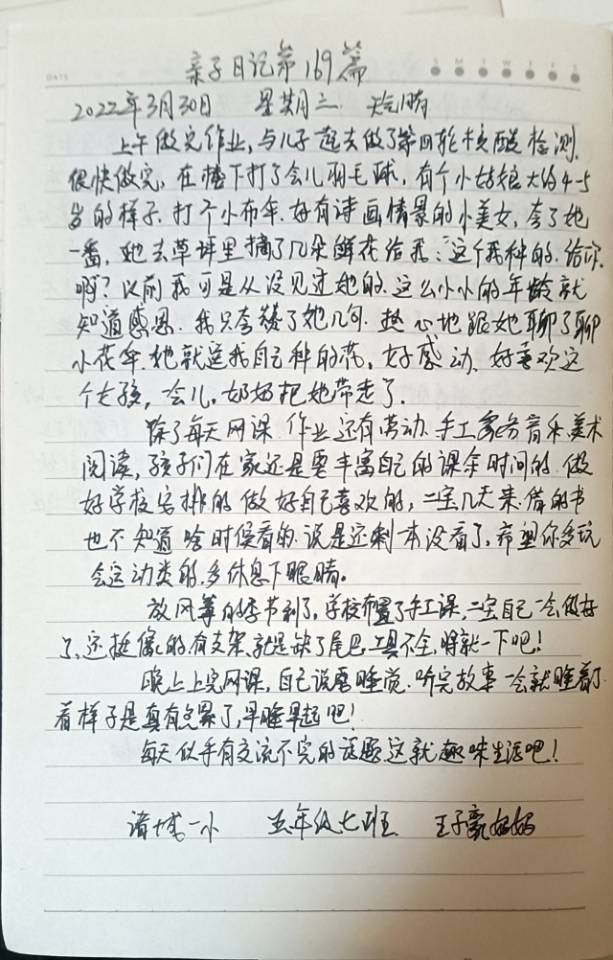 DATE S M T W T F S
亲子日记第169篇
2022年3月30日 星期三 天气晴
上午做完作业,与儿子一起去做了第四轮核酸检测,
很快做完,在楼下打了会儿羽毛球,有个小姑娘大约4-5
岁的样子,打个小布伞,好有诗画情景的小美女,夸了她
一番,她去草坪里摘了几朵鲜花给我:这个我种的,给你,
啊?以前我可是从没见过她的,这么小小的年龄就
知道感恩,我只夸赞了她几句,热心地跟她聊了聊
小花伞,她就送我自己种的花,好感动,好喜欢这
个女孩,会儿,奶奶把她带走了.
除了每天网课、作业还有劳动、手工家务音乐、美术
阅读,孩子们在家还是要丰富自己的课余时间的,做
好学校安排的,做好自己喜欢的,二宝几天来借的书
也不知道啥时候看的,说是还剩一本没看了,希望你多玩
会运动类的,多休息下眼睛。
放风筝的季节到了,学校布置了手工课,二宝自己一会做好
了,还挺像的,有支架,就是缺了尾巴,工具不全,将就一下吧!
晚上上完网课,自己说要睡觉,听完故事一会就睡着了,
看样子是真有点累了,早睡早起吧!
每天似乎有交流不完的话题,这就趣味生活吧!
诸城一小 五年级七班 王子豪妈妈